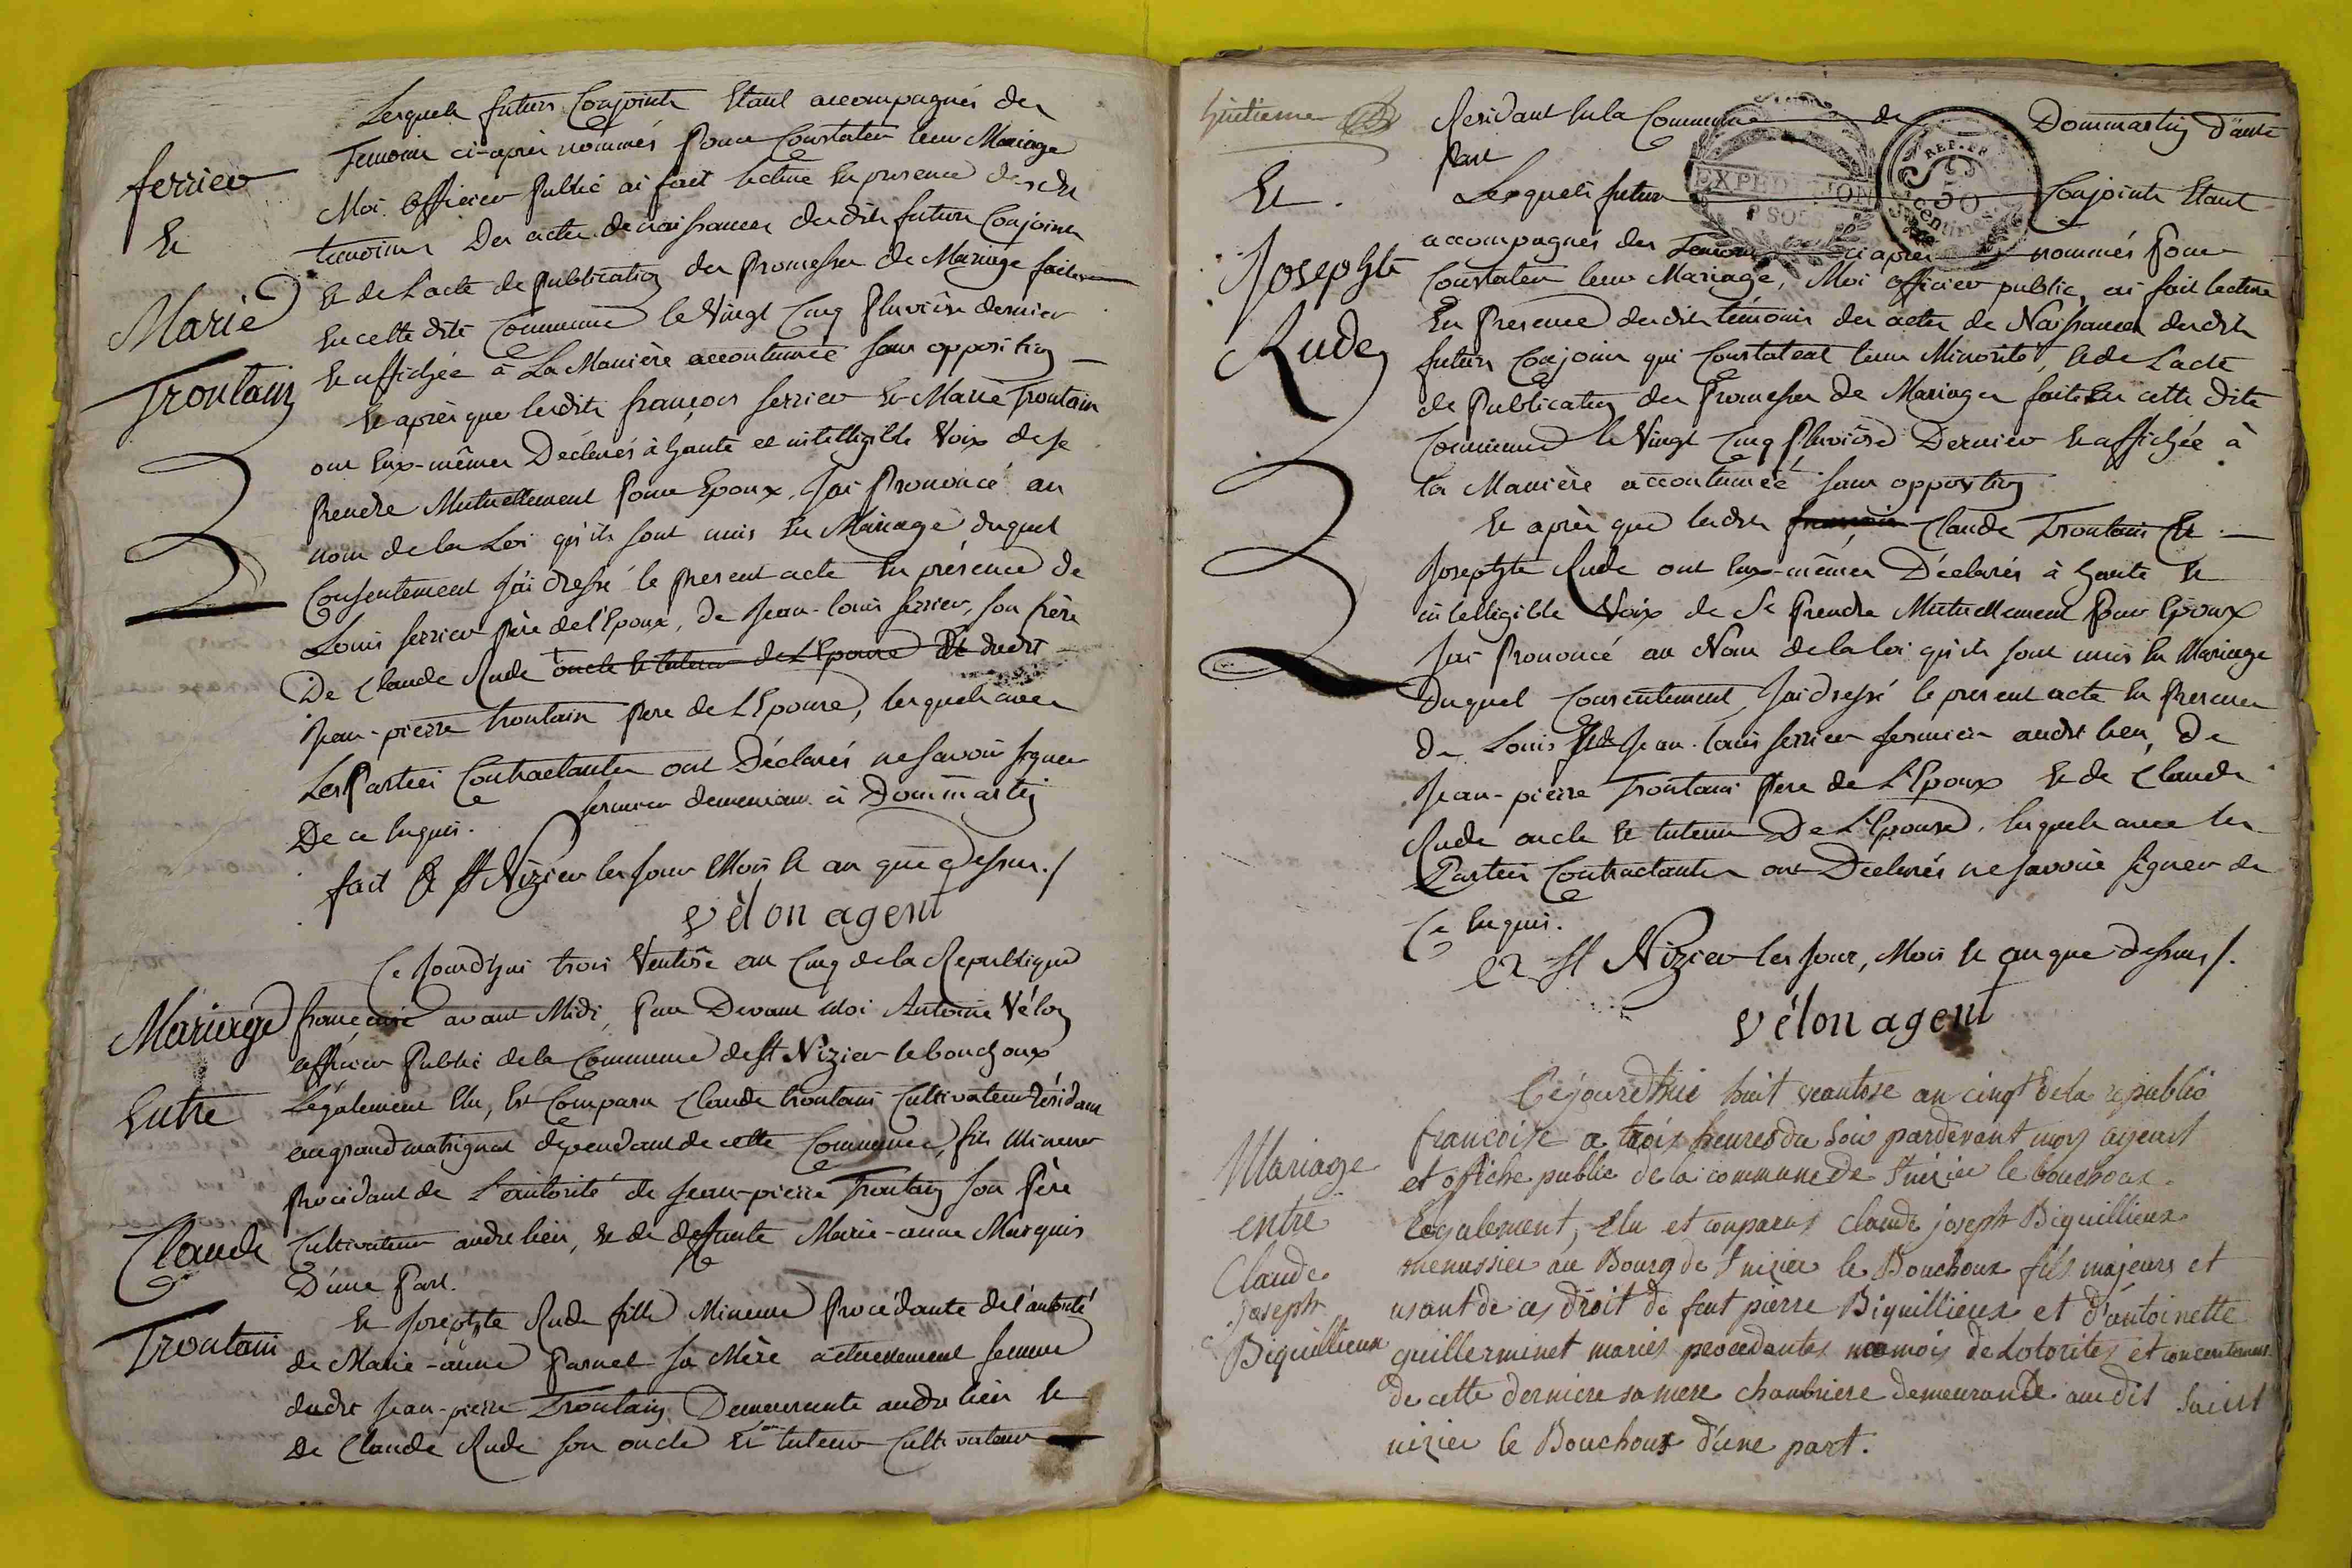 Lesquels futurs Conjoints Etant accompagnés des
Temoins ci-après nommés Pour Constater leur Mariage
Moi officier Public ai fait lecture En presence desdits
temoins Des actes de naissances desdits futurs Conjoints
Et de L'acte de publication des Promesses de Mariage faites
En cette dite Commune le Vingt Cinq Pluviôse dernier
Et affichée à La Manière accoutumée sans opposition
Et après que lesdits françois ferrier Et Marie Troutain
ont Eux-mêmes Déclarés à hante et intelligible Voix de se
Prendre Mutuellement Pour Epoux, J'ai Prononcé au
nom de la Loi qu'ils sont unis En Mariage duquel
Consentement J'ai dressé le present acte En présence de
Louis ferrier père de l'Epoux, de Jean-louis ferrier, son frère
De Claude Rude oncle Et tuteur de L'Epouse Et dudit
Jean-pierre troutain Pere de L'Epouse, lesquels avec
Les Parties Contractantes ont Déclarés ne savoir signer
De ce Enquis. fermier demeurant à Dommartin
fait à St Nizier les Jour Mois Et an que dessus ./
vèlon agent
ferrier
Et
Marie
Troutain
Ce Jourd'hui trois Ventôse an Cinq de la Republique
françoise avant Midi, Par Devant Moi Antoine Vélon
officier Public de la Commune de St Nizier le bouchoux
Légalement Elu, Est Comparu Claude troutain Cultivateur Résidant
au grand matrignat dependant de cette Commune, fils Mineur
Procédant de L'autorité de Jean-pierre Troutain son Père
Cultivateur audit lieu, Et de deffunte Marie-anne Marquis
D'une Part.
Et Josephte Rude fille Mineure Procédante de l'autorité
de Marie-anne Parnet sa Mère actuellement femme
dudit Jean-pierre Troutain Demeurante audit lieu Et
De Claude Rude son oncle Et son tuteur Cultivateur
Mariage
Entre
Claude
Troutain
huitieme
Résidant En la Commune de Dommartin D'autre
Part
EXPEDITION
REP. FR.
50
centimes
Lesquels futurs Conjoints Etant
accompagnés des Temoins ci après nommés Pour
Constater leur Mariage, Moi officier public, ai fait lecture
En Presence desdits témoins des actes de Naissances desdits
futurs Conjoins qui Constatent leur Minorité, Et de L'acte
de Publication des Promesses de Mariages faites En cette dite
Commune le Vingt Cinq Pluviôse Dernier Et affichée à
la Manière accoutumée sans opposition
Et après que lesdits françois Claude Troutain Et
Josephte Rude ont Eux-mêmes Déclarés à hante Et
intelligible Voix de Se Prendre Mutuellement Pour Epoux
J'ai Prononcé au Nom de la loi qu'ils sont unis En Mariage
Duquel Consentement, J'ai dressé le present acte En Presence
de Louis Et de Jean-louis ferrier fermier audit lieu, De
Jean-pierre Troutain Pere de L'Epoux Et de Claude
Rude oncle Et tuteur De L'Epouse, lesquels avec les
Parties Contractantes ont Declarés ne savoir Signer de
Ce Enquis.
St Nizier les Jour, Mois Et an que dessus /.
vélon agent
Et
Josephte
Rude
Cejourdhui huit veantose an cinqt dela republiq
francoise a trois heures du Soir pardevant moy agent
et offiche public de la commune de St nizier le bouchoux
Legalement, Elu et comparus claude joseph Biquillieux
menussier au Bourg de St nizier le Bouchoux fils majeurs et
usant de ces droit de feut pierre Biquillieux et d'antoinette
guillerminet mariés procedantes neamois de Lotorités et concentement
de cette derniere sa mere chanbriere demeurande audit Saint
nizier le Bouchoux d'une part.
Mariage
entre
Claude
Joseph
Biquillieux